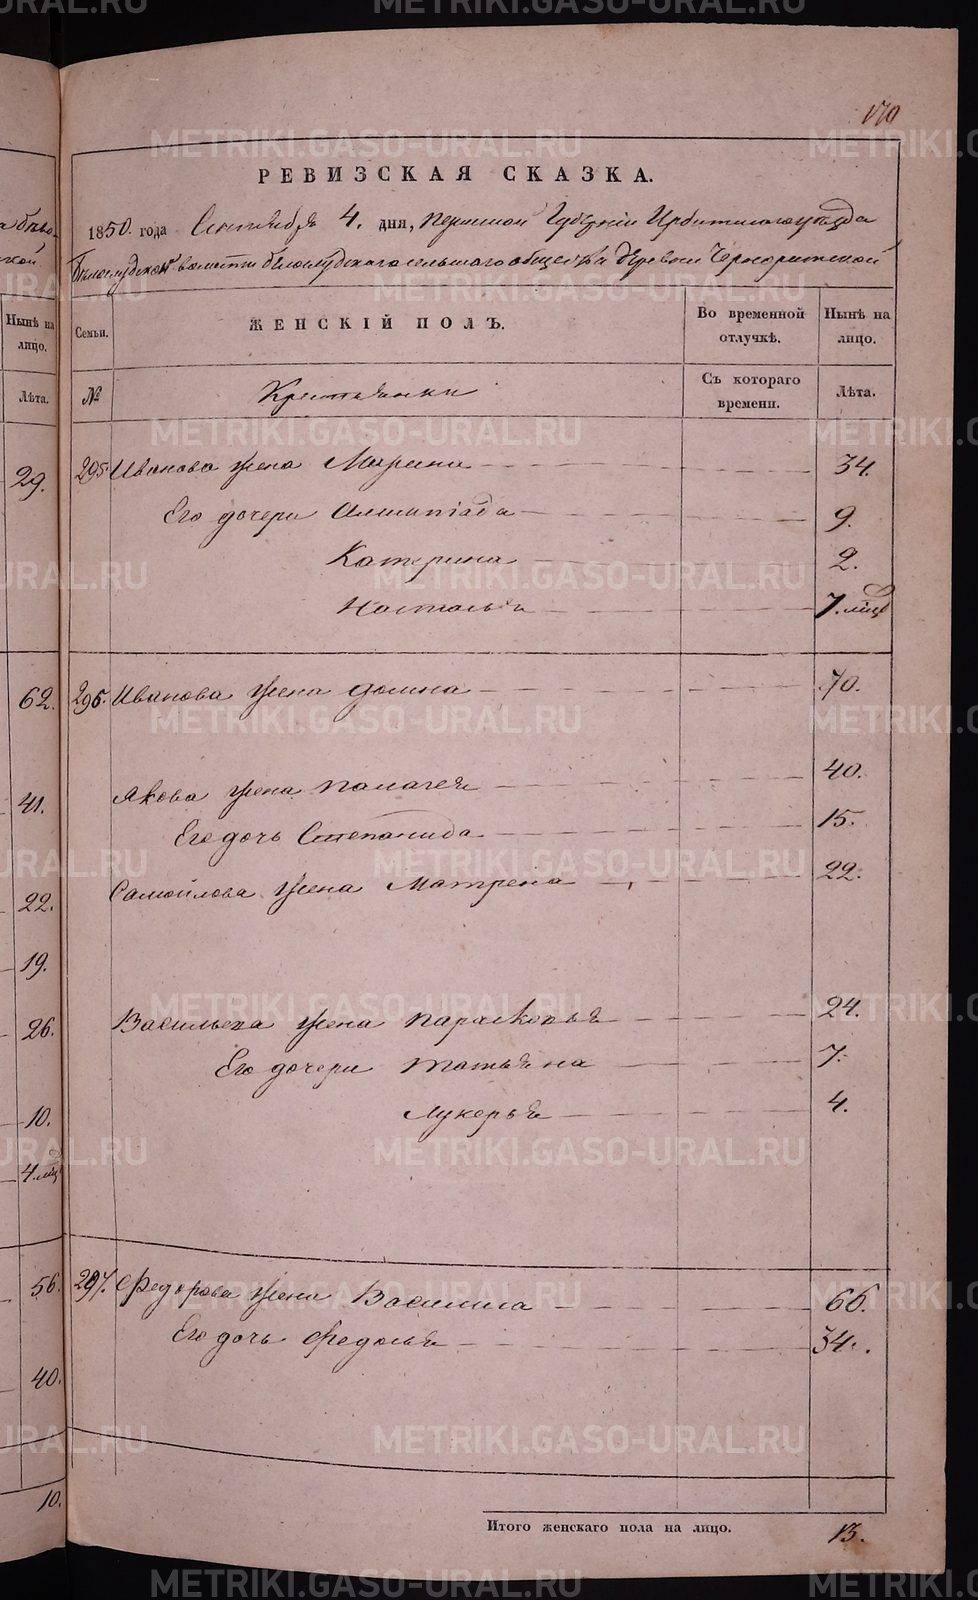 170
РЕВИЗСКАЯ СКАЗКА.
1850. года Сентября 4. дня, Пермской Губернiи Ирбитскаго уѣзда
Бѣлослудской волости Бѣлослудскаго сельскаго общества деревни
ЖЕНСКІЙ ПОЛЪ.
Семьи.
Во временной отлучкѣ.
Нынѣ на лицо.
№
Крестьянки
Съ котораго времени.
Лѣта.
295. Иванова жена Марина 34.
Его дочери Алимпіада 9.
Катерина 2.
Настасья 7.
296. Иванова жена Домна 70.
Якова жена Палагея 40.
Его дочь Степанида 15.
Самойлова жена Матрена 22.
Васильева жена Парасковья 24.
Его дочери Татьяна 7.
Лукерья 4.
297. Федорова жена Василиса 66.
Его дочь Федосья 34.
Итого женскаго пола на лицо. 13.
Нынѣ на лицо.
Лѣта.
29.
62.
41.
22.
19.
26.
10.
4.
56.
40.
10.
METRIKI.GASO-URAL.RU